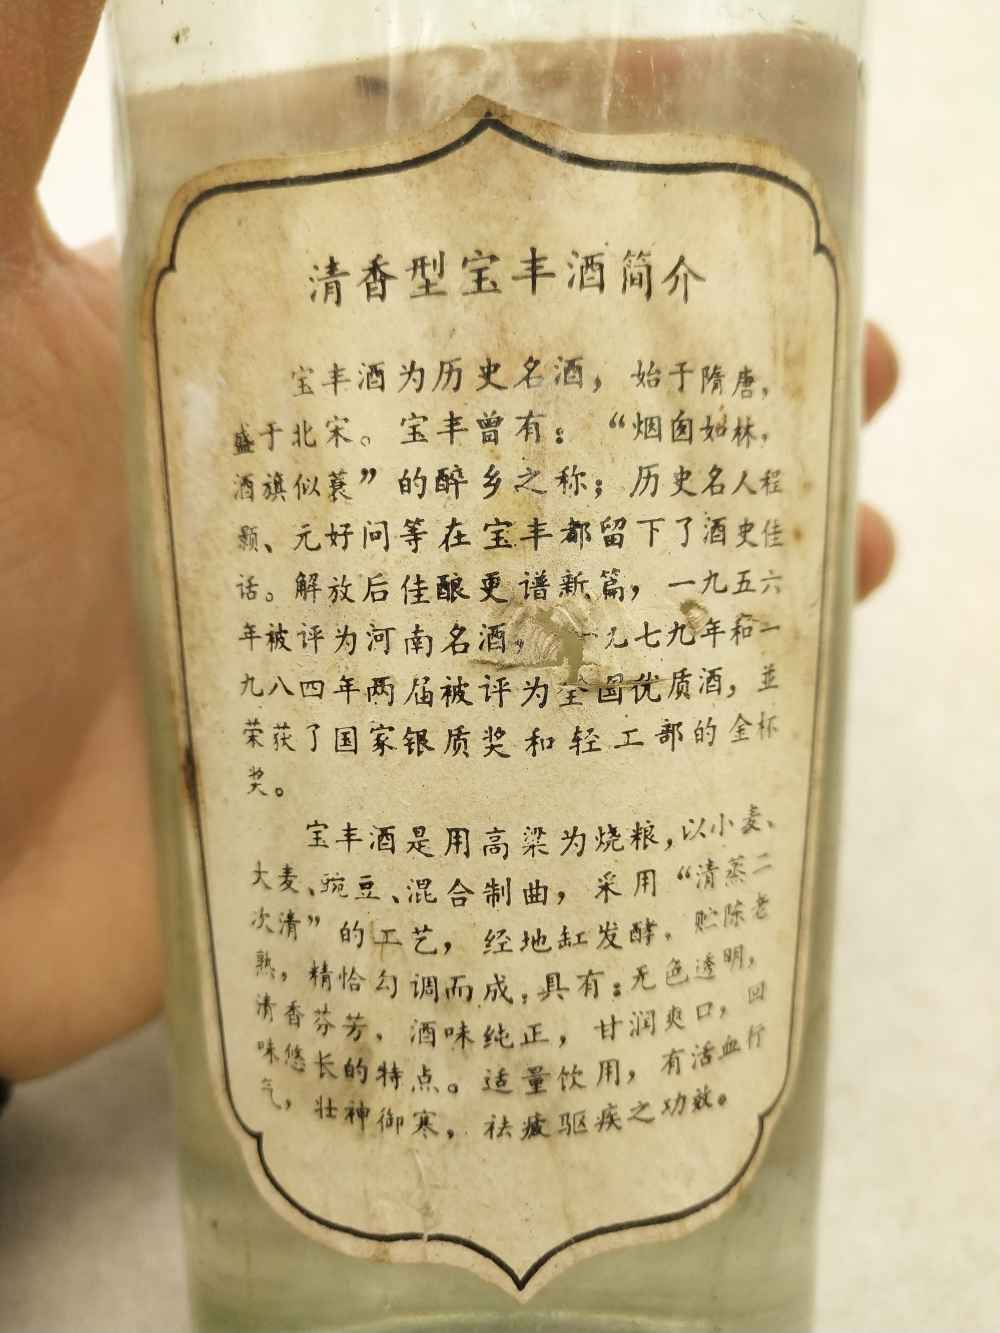 清香型宝丰酒简介
宝丰酒为历史名酒，始于隋唐，
盛于北宋。宝丰曾有：“烟囱如林，
酒旗似蓑”的醉乡之称；历史名人程
颢、元好问等在宝丰都留下了酒史佳
话。解放后佳酿更谱新篇，一九五六
年被评为河南名酒，一九七九年和一
九八四年两届被评为全国优质酒，並
荣获了国家银质奖和轻工部的金杯
奖。
宝丰酒是用高梁为烧粮，以小麦、
大麦、豌豆、混合制曲，采用“清蒸二
次清”的工艺，经地缸发酵，贮陈老
熟，精恰勾调而成，具有：无色透明，
清香芬芳，酒味纯正，甘润爽口，回
味悠长的特点。适量饮用，有活血行
气，壮神御寒，祛疲驱疾之功效。